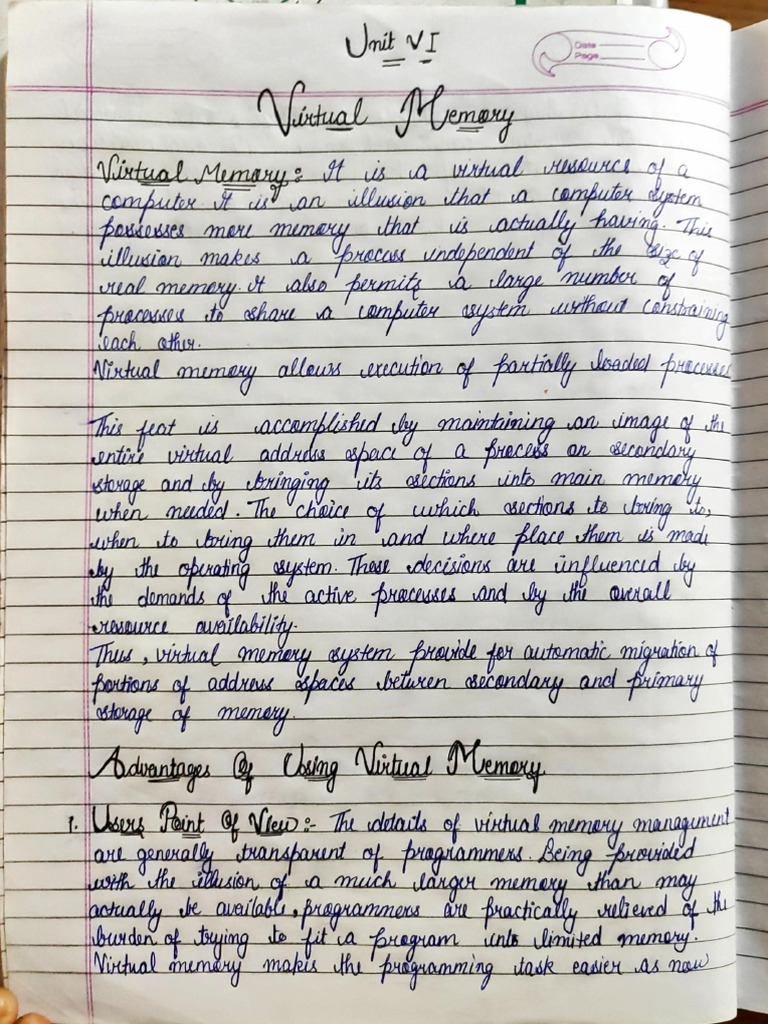 Unit VI
Date
Page
Virtual Memory
Virtual Memory: It is a virtual resource of a
computer It is an illusion that a computer system
possesses more memory that is actually having. This
illusion makes a process independent of the size of
real memory. It also permits a large number of
processes to share a computer system without constraining
each other.
Virtual memory allows execution of partially loaded processes
This feat is accomplished by maintaining an image of the
entire virtual address space of a process on secondary
storage and by bringing its sections into main memory
when needed. The choice of which sections to bring to,
when to bring them in and where place them is made
by the operating system. These decisions are influenced by
the demands of the active processes and by the overall
resource availability.
Thus, virtual memory system provide for automatic migration of
portions of address spaces between secondary and primary
storage of memory.
Advantages Of Using Virtual Memory
1. Users Point Of View :- The details of virtual memory management
are generally transparent of programmers. Being provided
with the illusion of a much larger memory than may
actually be available, programmers are practically relieved of the
burden of trying to fit a program into limited memory.
Virtual memory makes the programming task easier as now